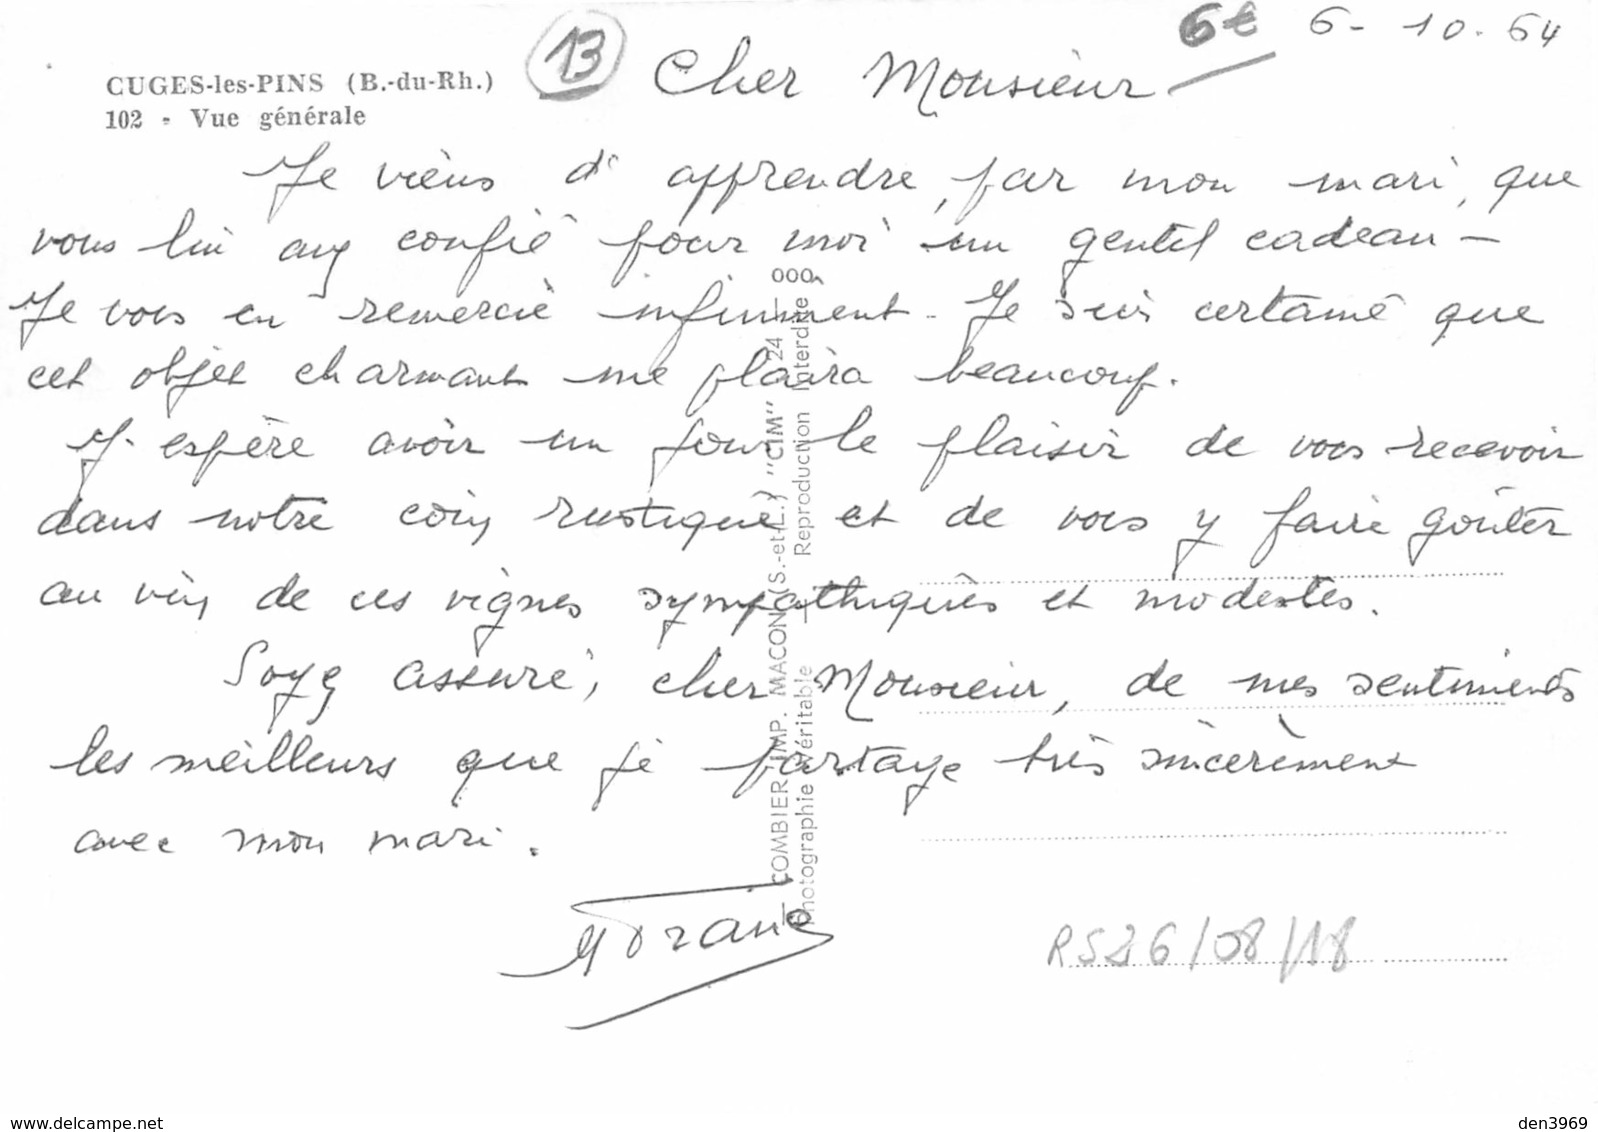 6€ 6-10.64
13
CUGES-les-PINS (B.-du-Rh.)
102 - Vue générale
Cher Monsieur
Je viens d'apprendre, par mon mari, que
vous lui avez confié pour moi un gentil cadeau -
Je vous en remercie infiniment. Je suis certaine que
cet objet charmant me plaira beaucoup.
J'espère avoir un jour le plaisir de vous recevoir
dans notre coin rustique et de vous y faire goûter
au vin de ces vignes sympathiques et modestes.
Soyez assuré, cher Monsieur, de mes sentiments
les meilleurs que je partage très sincèrement
avec mon mari.
COMBIER IMP. MACON (S.-et-L.) "CIM" 24
Photographie véritable — Reproduction interdite
RS26/08/18
www.delcampe.net
den3969